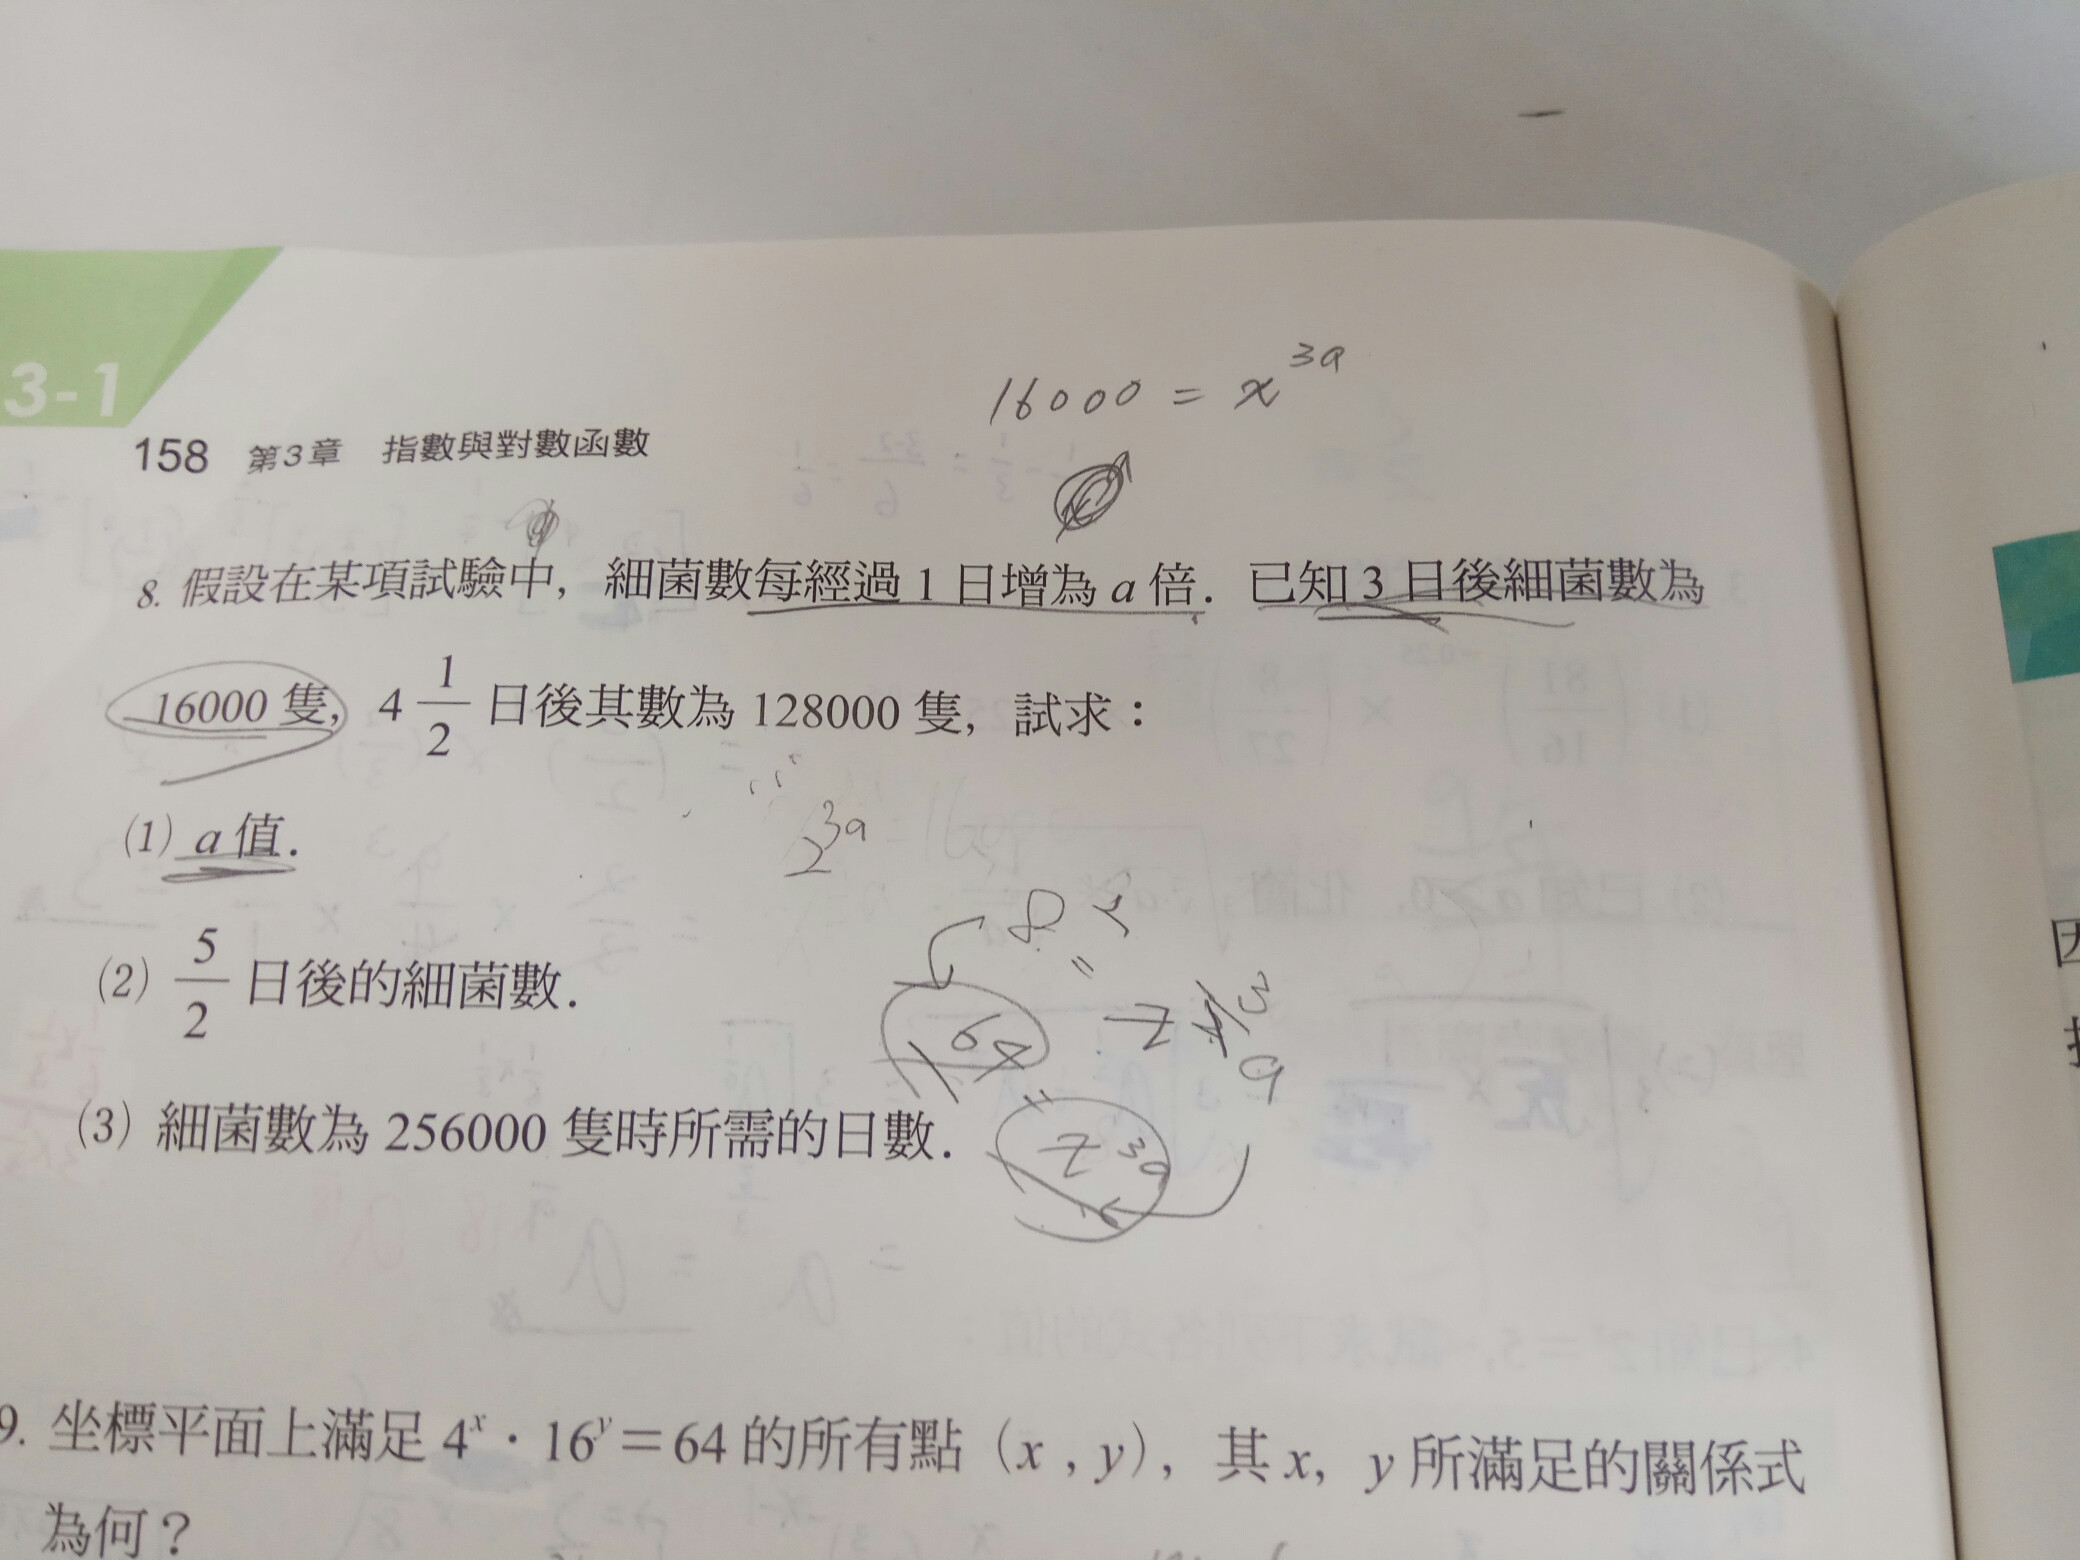 16000 = x^3a
3-1
158 第3章 指數與對數函數
8. 假設在某項試驗中, 細菌數每經過 1 日增為 a 倍. 已知 3 日後細菌數為
16000 隻, 4 1/2 日後其數為 128000 隻, 試求:
(1) a 值.
2^3a
(2) 5/2 日後的細菌數.
64
(3) 細菌數為 256000 隻時所需的日數.
9. 坐標平面上滿足 4^x · 16^y = 64 的所有點 (x , y), 其 x, y 所滿足的關係式
為何?